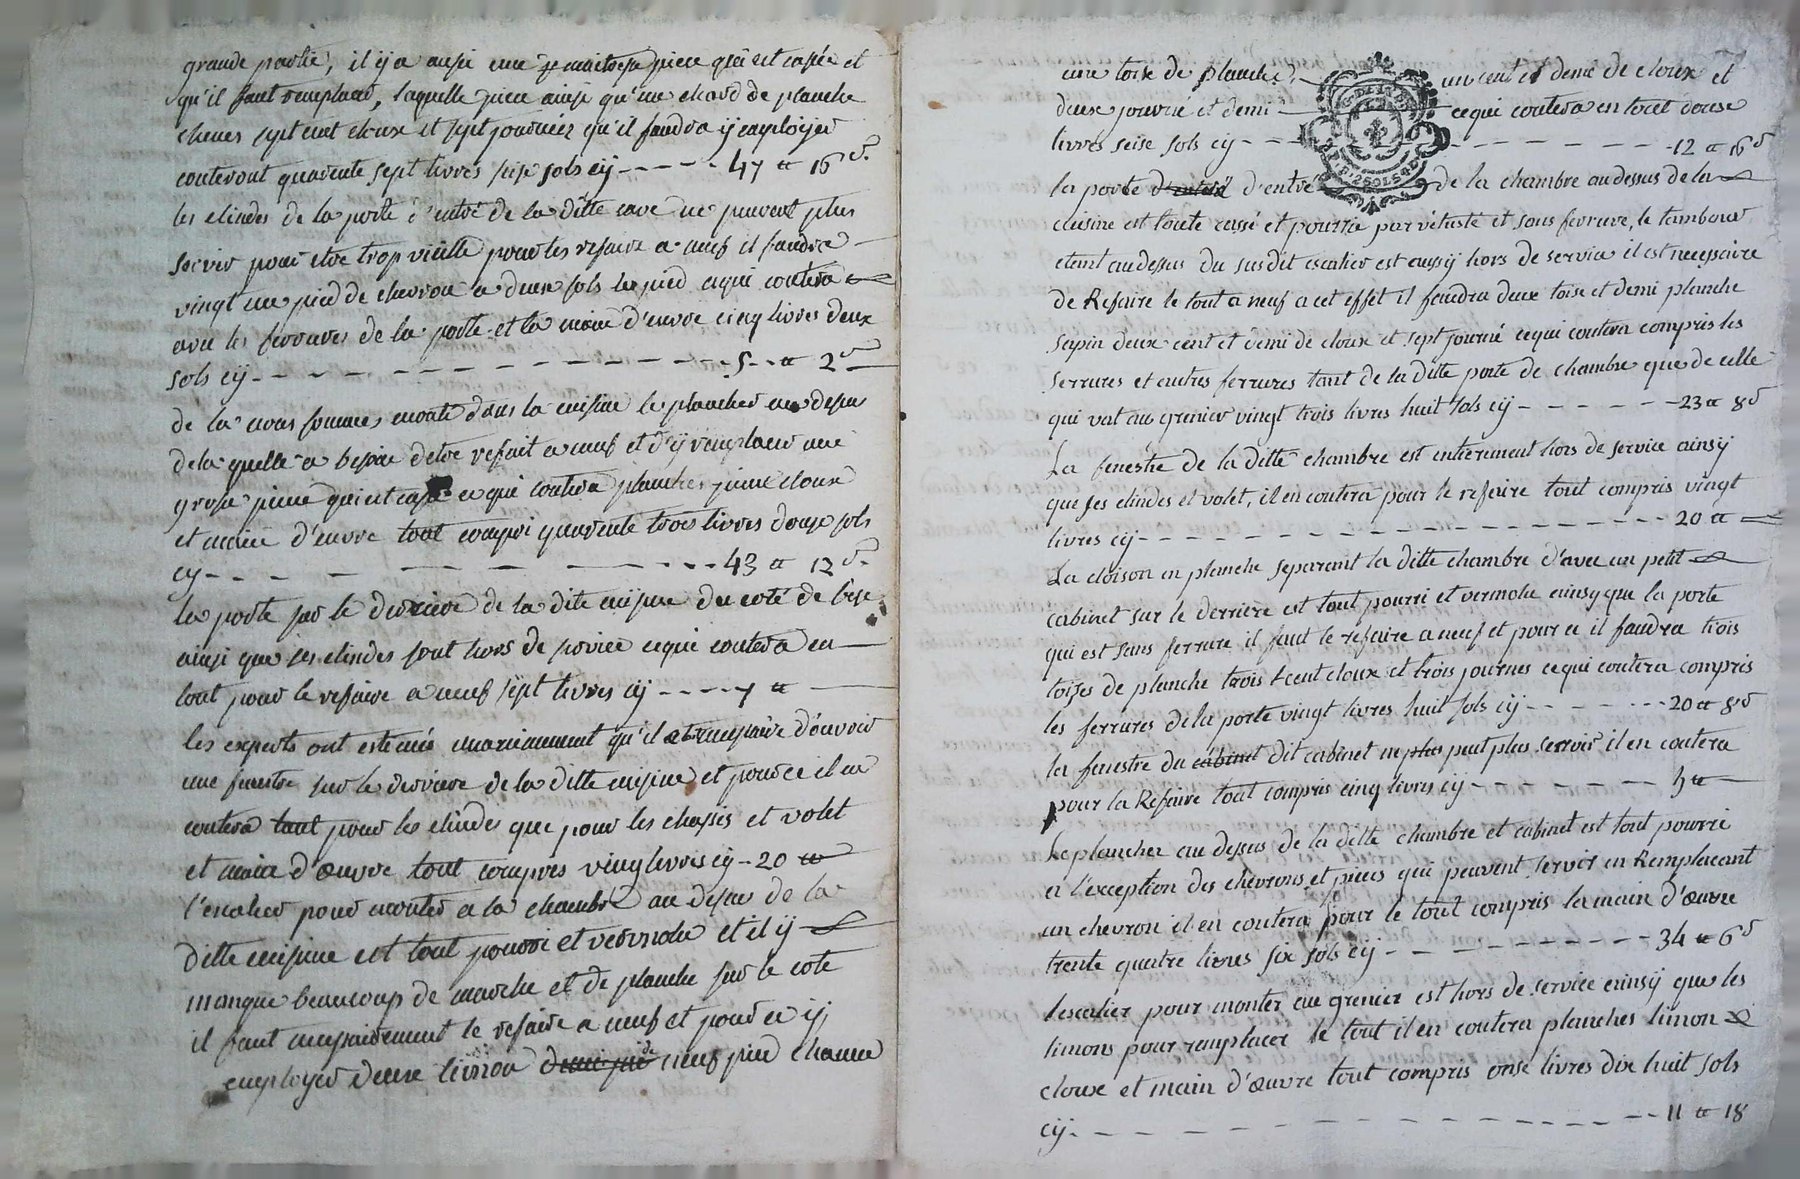 grande partie, il y a aussi une maitresse piece qui est cassée et
qu'il faut remplacer, laquelle piece ainsi qu'un chard de planche
chenes sept cent cloux et sept journées qu'il faudra ÿ employer
couteront quarente sept livres seise sols cÿ - - - - 47 tt 16 s
les elindes de la porte d'entré de la ditte cave ne peuvent plus
servir pour etre trop vieille pour les refaire a neuf il faudra
vingt un pied de chevron a deux sols le pied ce qui coutera
avec les ferrures de la porte et la main d'euvre cinq livres deux
sols cÿ - - - - - - - - - - - 5 - tt 2 s
de la nous sommes monté dans la cuisine le plancher au dessus
de la quelle a besoin d'etre refait a neuf et d'ÿ remplacer une
grosse piece qui est cassé ce qui coutera planches piece cloux
et main d'euvre tout compri quarente trois livres douze sols
cÿ - - - - - - - - - 43 tt 12 s
la porte sur le derriere de la dite cuisine du coté de bise
ainsi que ses elindes sont hors de service ce qui coutera en
tout pour le refaire a neuf sept livres cÿ - - - - 7 tt
les experts ont estimé unanimement qu'il est necessaire d'avoir
une fenetre sur le derriere de la ditte cuisine et pour ce il en
coutera tant pour les elindes que pour les chassis et volet
et main d'œuvre tout compris vingt livres cÿ - 20 tt
l'escalier pour monter a la chambre au dessus de la
ditte cuisine est tout pourri et vermolu et il ÿ
manque beaucoup de marche et de planche sur le coté
il faut necessairement le refaire a neuf et pour ce ÿ
employer deux limon de neuf pied chacun
une toise de planche, un cent et demi de cloux et
deux journé et demi ce qui coutera en tout douse
livres seise sols cÿ - - - - - - - - - 12 tt 16 s
la porte d'entré d'entré de la chambre au dessus de la
cuisine est toute cassé et pourrie par vétusté et sans ferrure, le tambour
etant au dessus du susdit escalier est aussÿ hors de service il est necessaire
de Refaire le tout a neuf a cet effet il faudra deux toise et demi planche
sapin deux cent et demi de cloux et sept journé ce qui coutera compris les
serrures et autres ferrures tant de la ditte porte de chambre que de celle
qui vat au grenier vingt trois livres huit sols cÿ - - - - - - 23 tt 8 s
La fenestre de la ditte chambre est entierement hors de service ainsÿ
que ses elindes et volet, il en coutera pour le refaire tout compris vingt
livres cÿ - - - - - - - - - - - - - 20 tt
La cloison en planche separant la ditte chambre d'avec un petit
cabinet sur le derriere est tout pourri et vermolu ainsy que la porte
qui est sans ferrure il faut le refaire a neuf et pour ce il faudra trois
toises de planche trois cent cloux et trois journes ce qui coutera compris
les ferrures de la porte vingt livres huit sols cÿ - - - - - - 20 tt 8 s
la fenestre du cabinet dit cabinet ne plus peut plus servoir il en coutera
pour la Refaire tout compris cinq livres cÿ - - - - - - - 5 tt
Le plancher au dessus de la ditte chambre et cabinet est tout pourri
a l'exception des chevrons et pieces qui peuvent servir en Remplacant
un chevron il en coutera pour le tout compris la main d'œuvre
trente quatre livres six sols cÿ - - - - - - - - - 34 tt 6 s
lescalier pour monter au grenier est hors de service ainsÿ que les
limons pour remplacer le tout il en coutera planches limon
cloux et main d'œuvre tout compris onse livres dix huit sols
cÿ - - - - - - - - - - - - - 11 tt 18